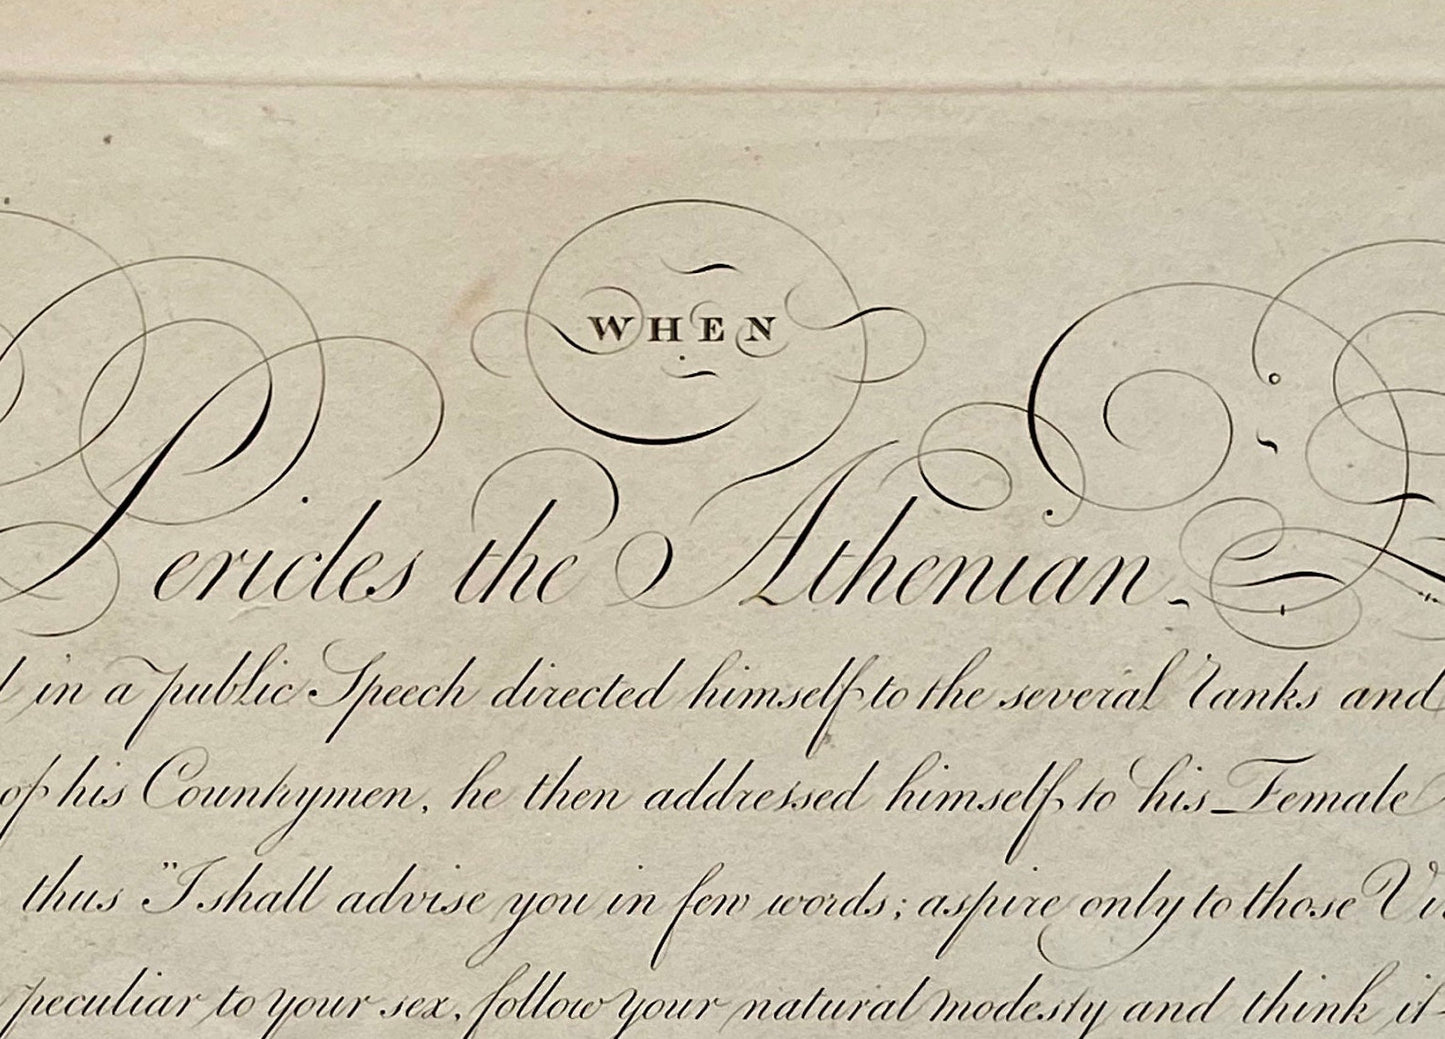 WHEN
Pericles the Athenian
in a public Speech directed himself to the several ranks and
of his Countrymen, he then addressed himself to his Female
thus "I shall advise you in few words; aspire only to those
peculiar to your sex, follow your natural modesty and think it